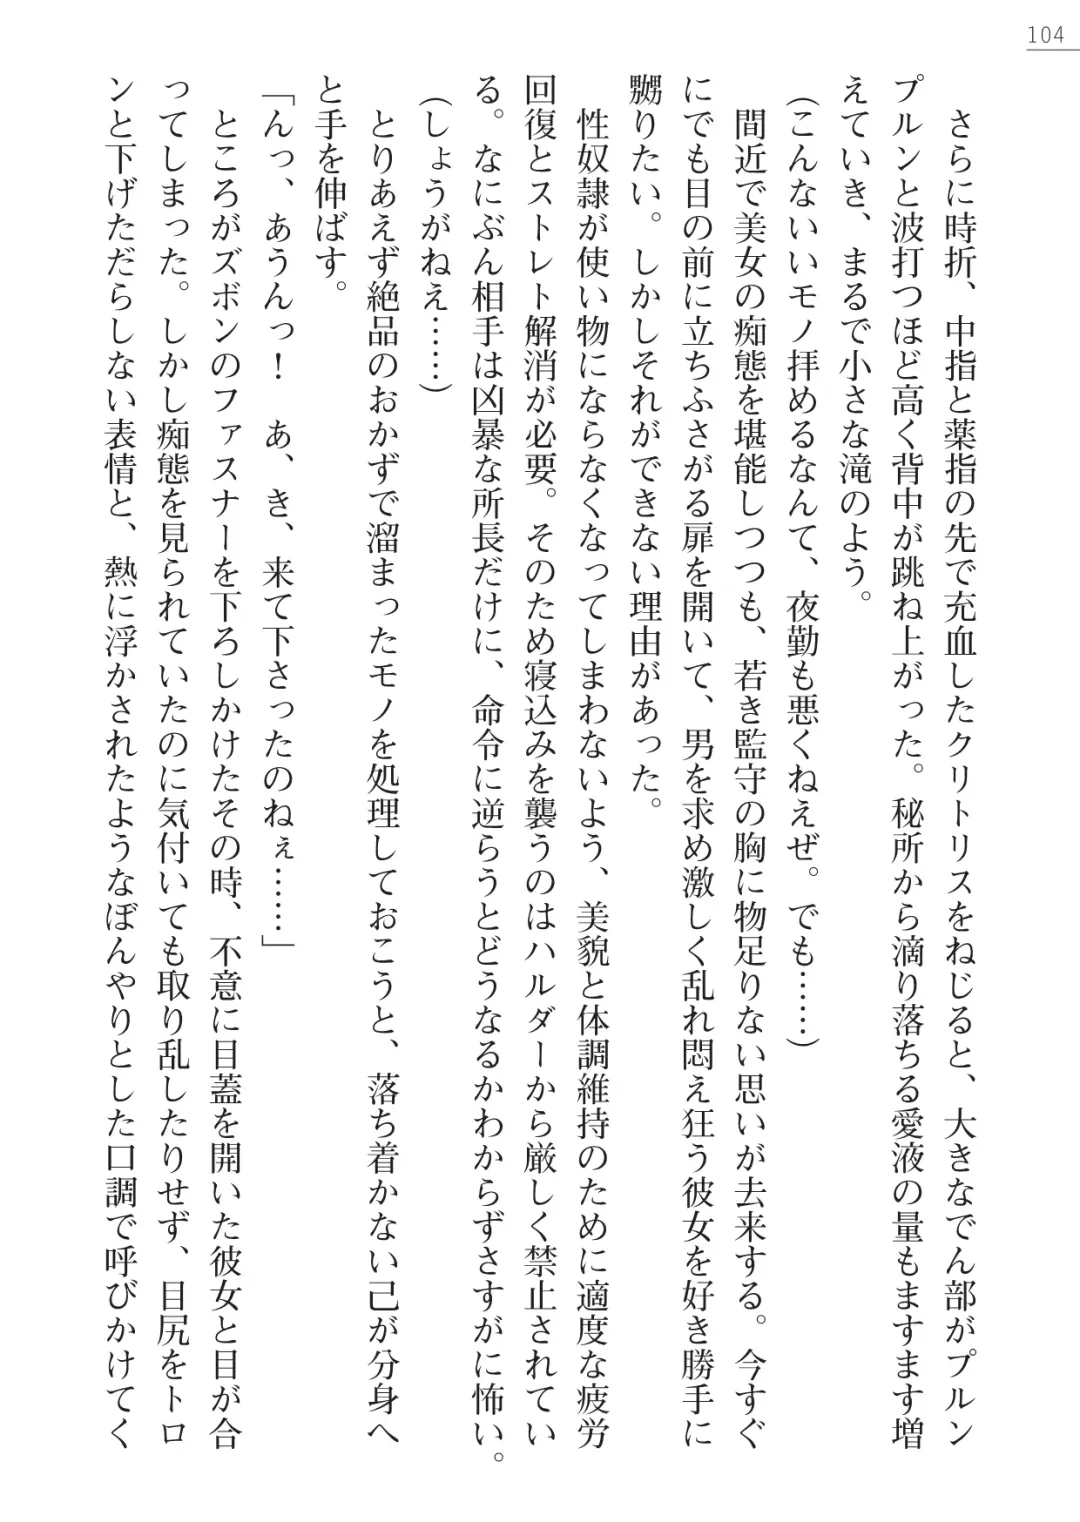 104
さらに時折、中指と薬指の先で充血したクリトリスをねじると、大きなでん部がプルン
プルンと波打つほど高く背中が跳ね上がった。秘所から滴り落ちる愛液の量もますます増
えていき、まるで小さな滝のよう。
(こんないいモノ拝めるなんて、夜勤も悪くねえぜ。でも……)
間近で美女の痴態を堪能しつつも、若き監守の胸に物足りない思いが去来する。今すぐ
にでも目の前に立ちふさがる扉を開いて、男を求め激しく乱れ悶え狂う彼女を好き勝手に
嬲りたい。しかしそれができない理由があった。
性奴隷が使い物にならなくなってしまわないよう、美貌と体調維持のために適度な疲労
回復とストレト解消が必要。そのため寝込みを襲うのはハルダーから厳しく禁止されてい
る。なにぶん相手は凶暴な所長だけに、命令に逆らうとどうなるかわからずさすがに怖い。
(しょうがねえ……)
とりあえず絶品のおかずで溜まったモノを処理しておこうと、落ち着かない己が分身へ
と手を伸ばす。
「んっ、あうんっ！　あ、き、来て下さったのねぇ……」
ところがズボンのファスナーを下ろしかけたその時、不意に目蓋を開いた彼女と目が合
ってしまった。しかし痴態を見られていたのに気付いても取り乱したりせず、目尻をトロ
ンと下げただらしない表情と、熱に浮かされたようなぼんやりとした口調で呼びかけてく